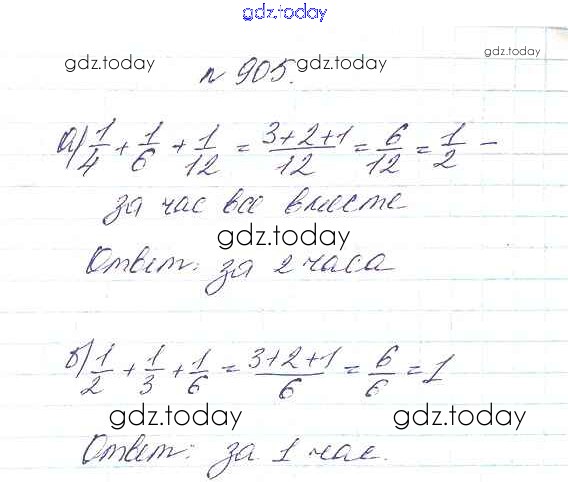 gdz.today
gdz.today gdz.today gdz.today
№ 905.
а) 1/4 + 1/6 + 1/12 = (3+2+1)/12 = 6/12 = 1/2 –
за час все вместе
gdz.today
Ответ: за 2 часа
б) 1/2 + 1/3 + 1/6 = (3+2+1)/6 = 6/6 = 1
gdz.today gdz.today
Ответ: за 1 час.